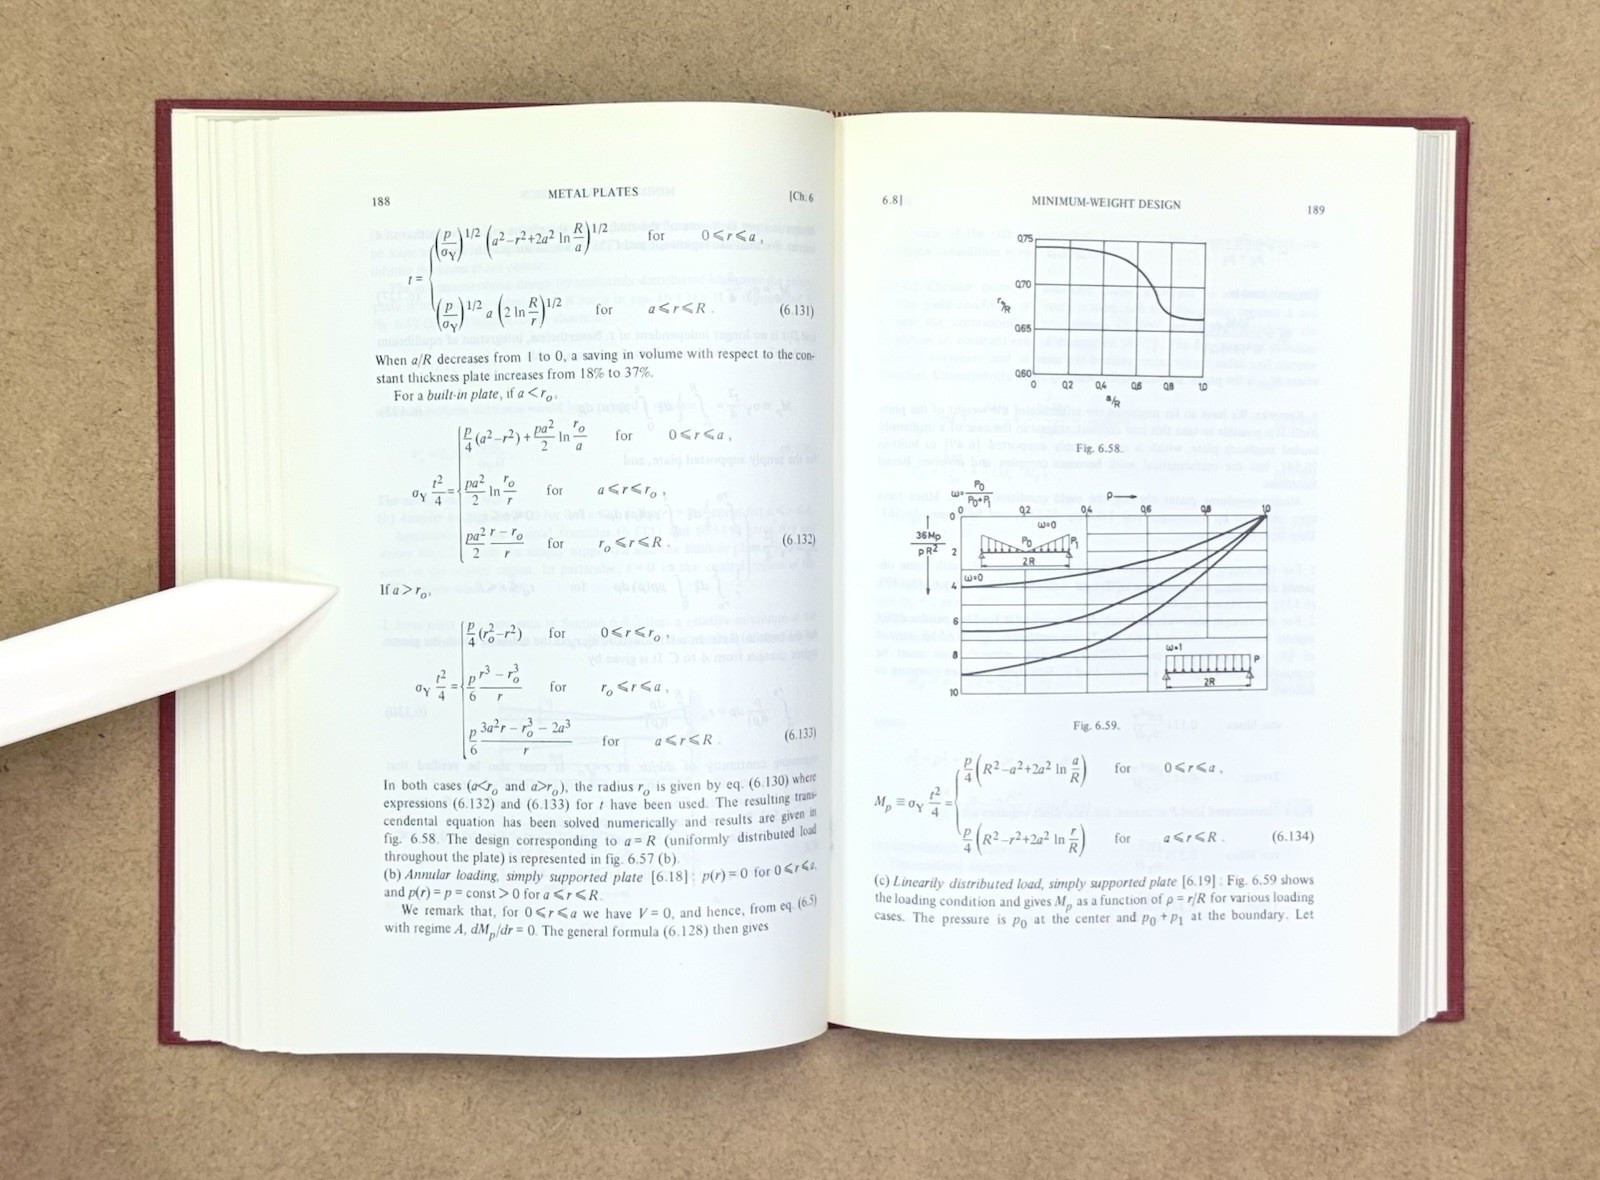 188 METAL PLATES [Ch. 6
t = { (p/σ_Y)^1/2 (a²−r²+2a² ln R/a)^1/2 for 0⩽r⩽a ,
(p/σ_Y)^1/2 a (2 ln R/r)^1/2 for a⩽r⩽R . (6.131)
When a/R decreases from 1 to 0, a saving in volume with respect to the con-
stant thickness plate increases from 18% to 37%.
For a built-in plate, if a < r_o,
σ_Y t²/4 = { p/4 (a²−r²) + pa²/2 ln r_o/a for 0⩽r⩽a ,
pa²/2 ln r_o/r for a⩽r⩽r_o ,
pa²/2 (r − r_o)/r for r_o⩽r⩽R . (6.132)
If a > r_o,
σ_Y t²/4 = { p/4 (r_o²−r²) for 0⩽r⩽r_o ,
p/6 (r³ − r_o³)/r for r_o⩽r⩽a ,
p/6 (3a²r − r_o³ − 2a³)/r for a⩽r⩽R . (6.133)
In both cases (a<r_o and a>r_o), the radius r_o is given by eq. (6.130) where
expressions (6.132) and (6.133) for t have been used. The resulting trans-
cendental equation has been solved numerically and results are given in
fig. 6.58. The design corresponding to a = R (uniformly distributed load
throughout the plate) is represented in fig. 6.57 (b).
(b) Annular loading, simply supported plate [6.18] : p(r) = 0 for 0⩽r⩽a,
and p(r) = p = const > 0 for a⩽r⩽R.
We remark that, for 0⩽r⩽a we have V = 0, and hence, from eq. (6.5)
with regime A, dM_p/dr = 0. The general formula (6.128) then gives
6.8] MINIMUM-WEIGHT DESIGN 189
0,75
0,70
r_o/R
0,65
0,60
0 0,2 0,4 0,6 0,8 1,0
a/R
Fig. 6.58.
ω= P0/(P0+P1) ρ→
0 0,2 0,4 0,6 0,8 1,0
0
36Mp/pR²
2
4
6
8
10
ω=0
P0 P1
2R
ω=0
ω=1
P
2R
Fig. 6.59.
M_p ≡ σ_Y t²/4 = { p/4 (R²−a²+2a² ln a/R) for 0⩽r⩽a ,
p/4 (R²−r²+2a² ln r/R) for a⩽r⩽R . (6.134)
(c) Linearly distributed load, simply supported plate [6.19] : Fig. 6.59 shows
the loading condition and gives M_p as a function of ρ = r/R for various loading
cases. The pressure is p_0 at the center and p_0 + p_1 at the boundary. Let